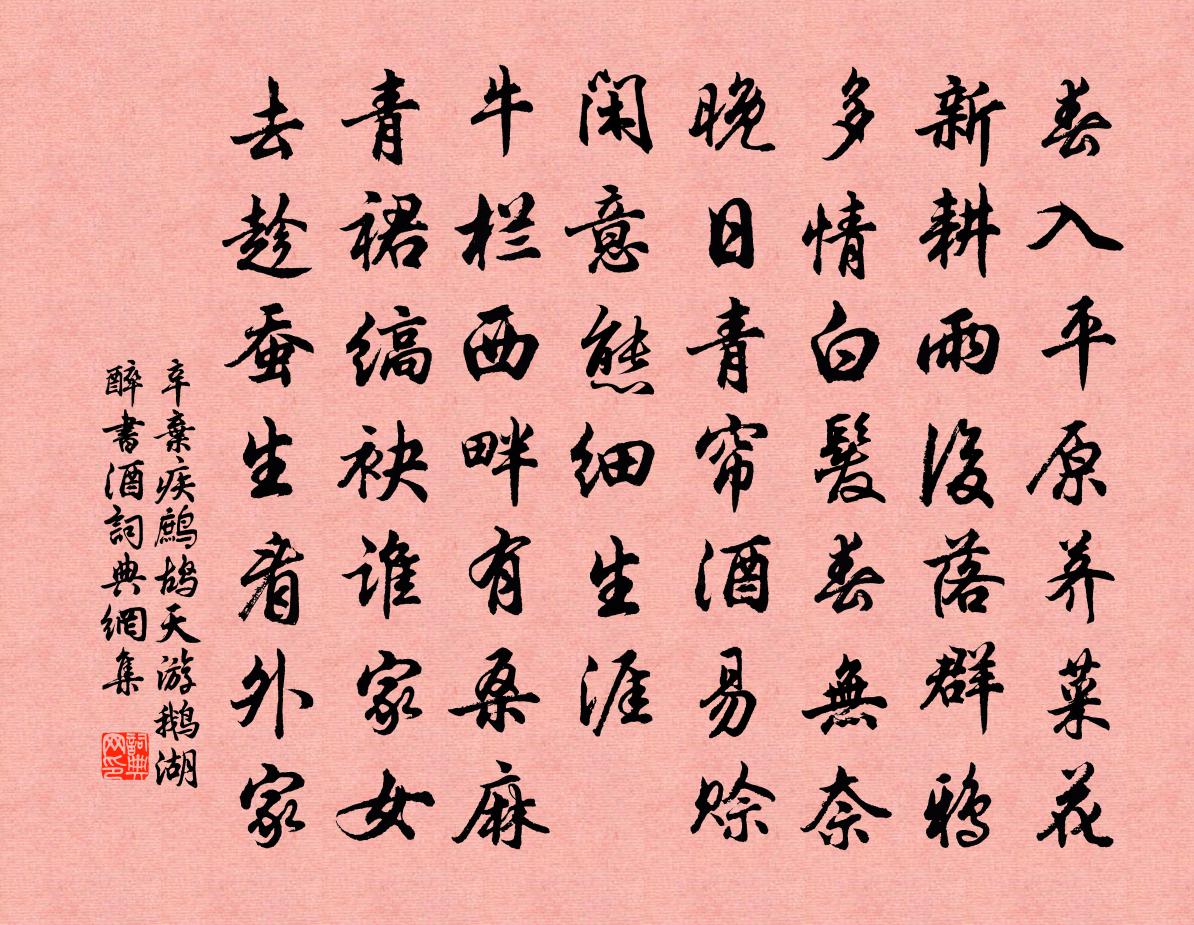 春入平原荠菜花
新耕雨後落群鸦
多情白髮春無奈
晚日青帘酒易赊
闲意態细生涯
牛栏西畔有桑麻
青裙缟袂谁家女
去趁蚕生看外家
辛棄疾鷓鸪天游鹅湖
醉書酒詞典網集
詞典网印